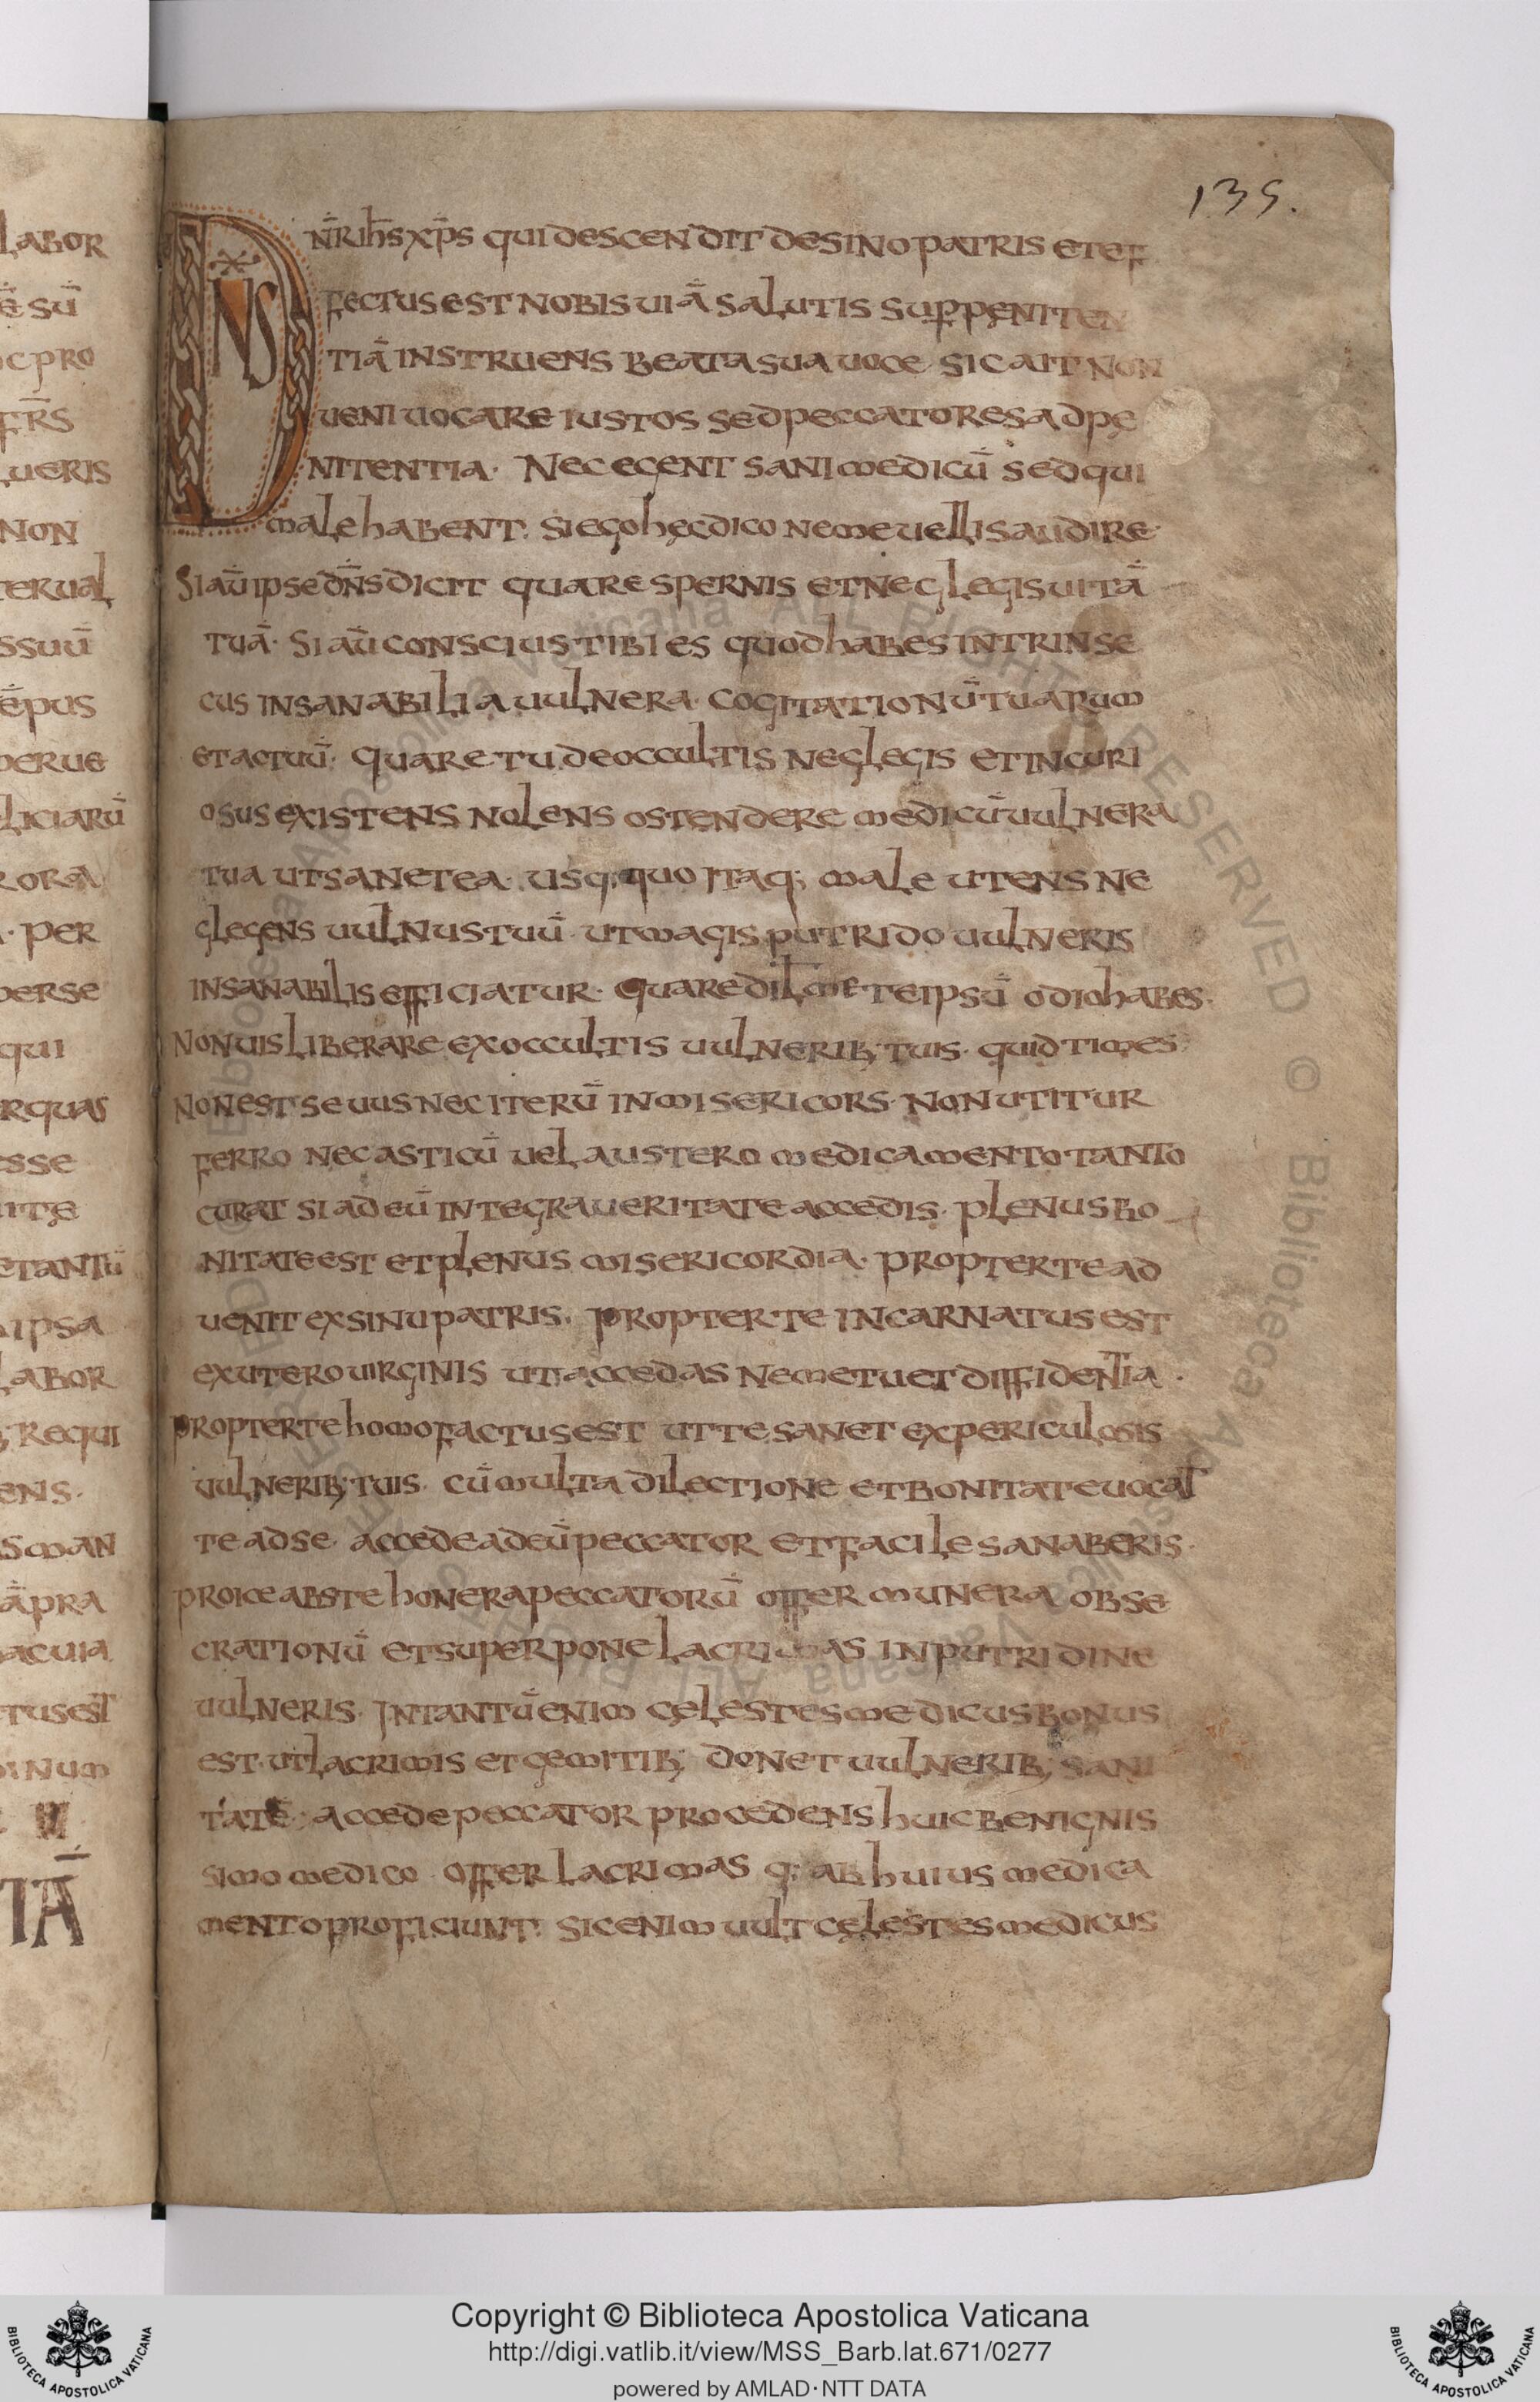 135.
DNS
N̄RI IH̄S XP̄S QUI DESCENDIT DE SINO PATRIS ET EF
FECTUS EST NOBIS UIĀ SALUTIS SUP PENITEN
TIĀ INSTRUENS BEATA SUA UOCE SIC AIT NON
UENI UOCARE IUSTOS SED PECCATORES AD PE
NITENTIA· NEC EGENT SANI MEDICŪ SED QUI
MALE HABENT. SI EGO HĘC DICO NE ME UELLIS AUDIRE·
SI AŪ IPSE DN̄S DICIT QUARE SPERNIS ET NEGLEGIS UITĀ
TUĀ· SI AŪ CONSCIUS TIBI ES QUOD HABES INTRINSE
CUS INSANABILIA UULNERA· COGITATIONŪ TUARUM
ET ACTUŪ· QUARE TU DE OCCULTIS NEGLEGIS ET INCURI
OSUS EXISTENS NOLENS OSTENDERE MEDICŪ UULNERA
TUA UT SANET EA· USQ; QUO ITAQ; MALE UTENS NE
GLEGENS UULNUS TUŪ· UT MAGIS PUTRIDO UULNERIS
INSANABILIS EFFICIATUR· QUARE DIL̄ METEIPSŪ ODIO HABES·
NON UIS LIBERARE EX OCCULTIS UULNERIB; TUIS· QUID TIMES
NON EST SEUUS NEC ITERŪ INMISERICORS· NON UTITUR
FERRO NEC ASTICŪ UEL AUSTERO MEDICAMENTO TANTO
CURAT SI AD EŪ INTEGRA UERITATE ACCEDIS· PLENUS BO
NITATE EST ET PLENUS MISERICORDIA· PROPTER TE AD
UENIT EX SINU PATRIS. PROPTER TE INCARNATUS EST
EX UTERO UIRGINIS UT ACCEDAS NE METU ET DIFFIDENTIA·
PROPTER TE HOMO FACTUS EST UT TE SANET EX PERICULOSIS
UULNERIB; TUIS· CŪ MULTA DILECTIONE ET BONITATE UOCAT
TE AD SE· ACCEDE AD EŪ PECCATOR ET FACILE SANABERIS·
PROICE ABS TE HONERA PECCATORŪ OFFER MUNERA OBSE
CRATIONŪ ET SUPERPONE LACRIMAS IN PUTRIDINE
UULNERIS· IN TANTŪ ENIM CĘLESTES MEDICUS BONUS
EST· UT LACRIMIS ET GEMITIB; DONET UULNERIB; SANI
TATĒ; ACCEDE PECCATOR PROCEDENS HUIC BENIGNIS
SIMO MEDICO· OFFER LACRIMAS Q; AB HUIUS MEDICA
MENTO PROFICIUNT. SIC ENIM UULT CĘLESTES MEDICUS
LABOR
Ē SŪ
C PRO
FR̄S
UERIS
NON
TERUAL
SSUŪ
ĒPUS
PERUE
LICIARŪ
RORA
· PER
PERSE
QUI
RQUAS
ESSE
ITE
ETANTŪ
IPSA
LABOR
REQUI
ENS·
SMAN
ĀPRA
ACUIA
TUSEST
INUM
TĀ
Copyright © Biblioteca Apostolica Vaticana
http://digi.vatlib.it/view/MSS_Barb.lat.671/0277
powered by AMLAD·NTT DATA
BIBLIOTECA APOSTOLICA VATICANA
BIBLIOTECA APOSTOLICA VATICANA